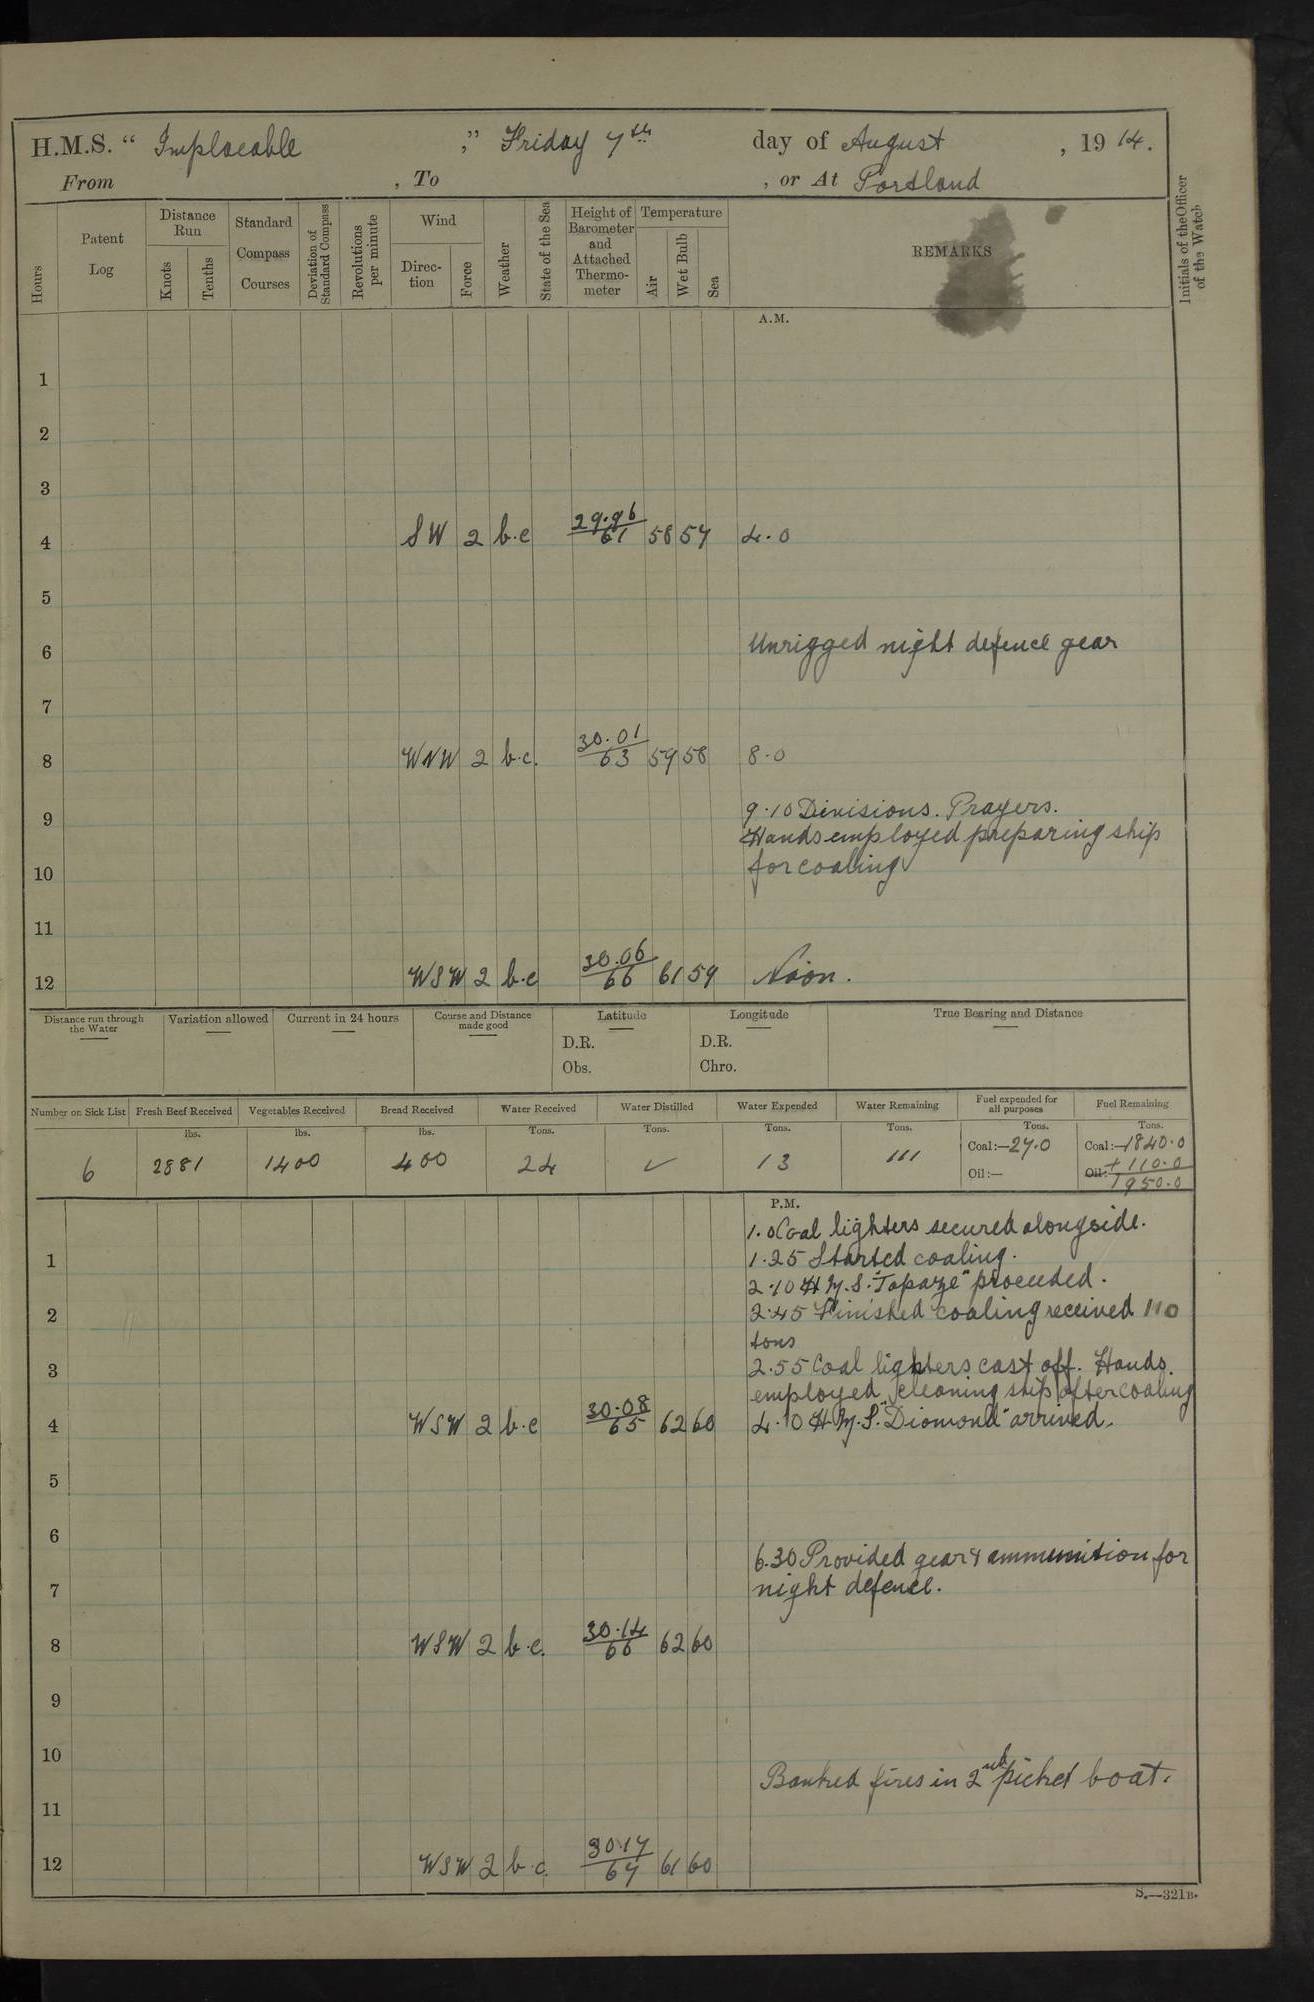 H.M.S. “ Implacable ,” Friday 7th day of August , 19 14.
From , To , or At Portland
Hours
Patent Log
Distance Run
Knots
Tenths
Standard Compass Courses
Deviation of Standard Compass
Revolutions per minute
Wind
Direc-tion
Force
Weather
State of the Sea
Height of Barometer and Attached Thermo-meter
Temperature
Air
Wet Bulb
Sea
REMARKS
Initials of the Officer of the Watch
A.M.
1
2
3
4 SW 2 b.c 29.96/61 58 57 4.0
5
6 Unrigged night defence gear
7
8 WNW 2 b.c. 30.01/63 59 58 8.0
9 9.10 Divisions. Prayers.
Hands employed preparing ship
10 for coaling
11
12 WSW 2 b.c 30.06/66 61 59 Noon.
Distance run through the Water
Variation allowed
Current in 24 hours
Course and Distance made good
Latitude
D.R.
Obs.
Longitude
D.R.
Chro.
True Bearing and Distance
Number on Sick List
Fresh Beef Received
Vegetables Received
Bread Received
Water Received
Water Distilled
Water Expended
Water Remaining
Fuel expended for all purposes
Fuel Remaining
lbs. lbs. lbs. Tons. Tons. Tons. Tons. Tons. Tons.
6 2881 1400 400 24 ✓ 13 111
Coal:—27.0
Oil:—
Coal:—1840.0
Oil:— + 110.0
1950.0
P.M.
1.0 Coal lighters secured alongside.
1 1.25 Started coaling.
2.10 H.M.S. "Topaze" proceeded.
2 2.45 Finished coaling received 110
tons
3 2.55 Coal lighters cast off. Hands
employed cleaning ship after coaling
4 WSW 2 b.c 30.08/65 62 60 4.10 H.M.S. "Diamond" arrived.
5
6
6.30 Provided gear & ammunition for
7 night defence.
8 WSW 2 b.c. 30.14/66 62 60
9
10
Banked fires in 2nd picket boat.
11
12 WSW 2 b.c. 30.17/67 61 60
S.—321B.